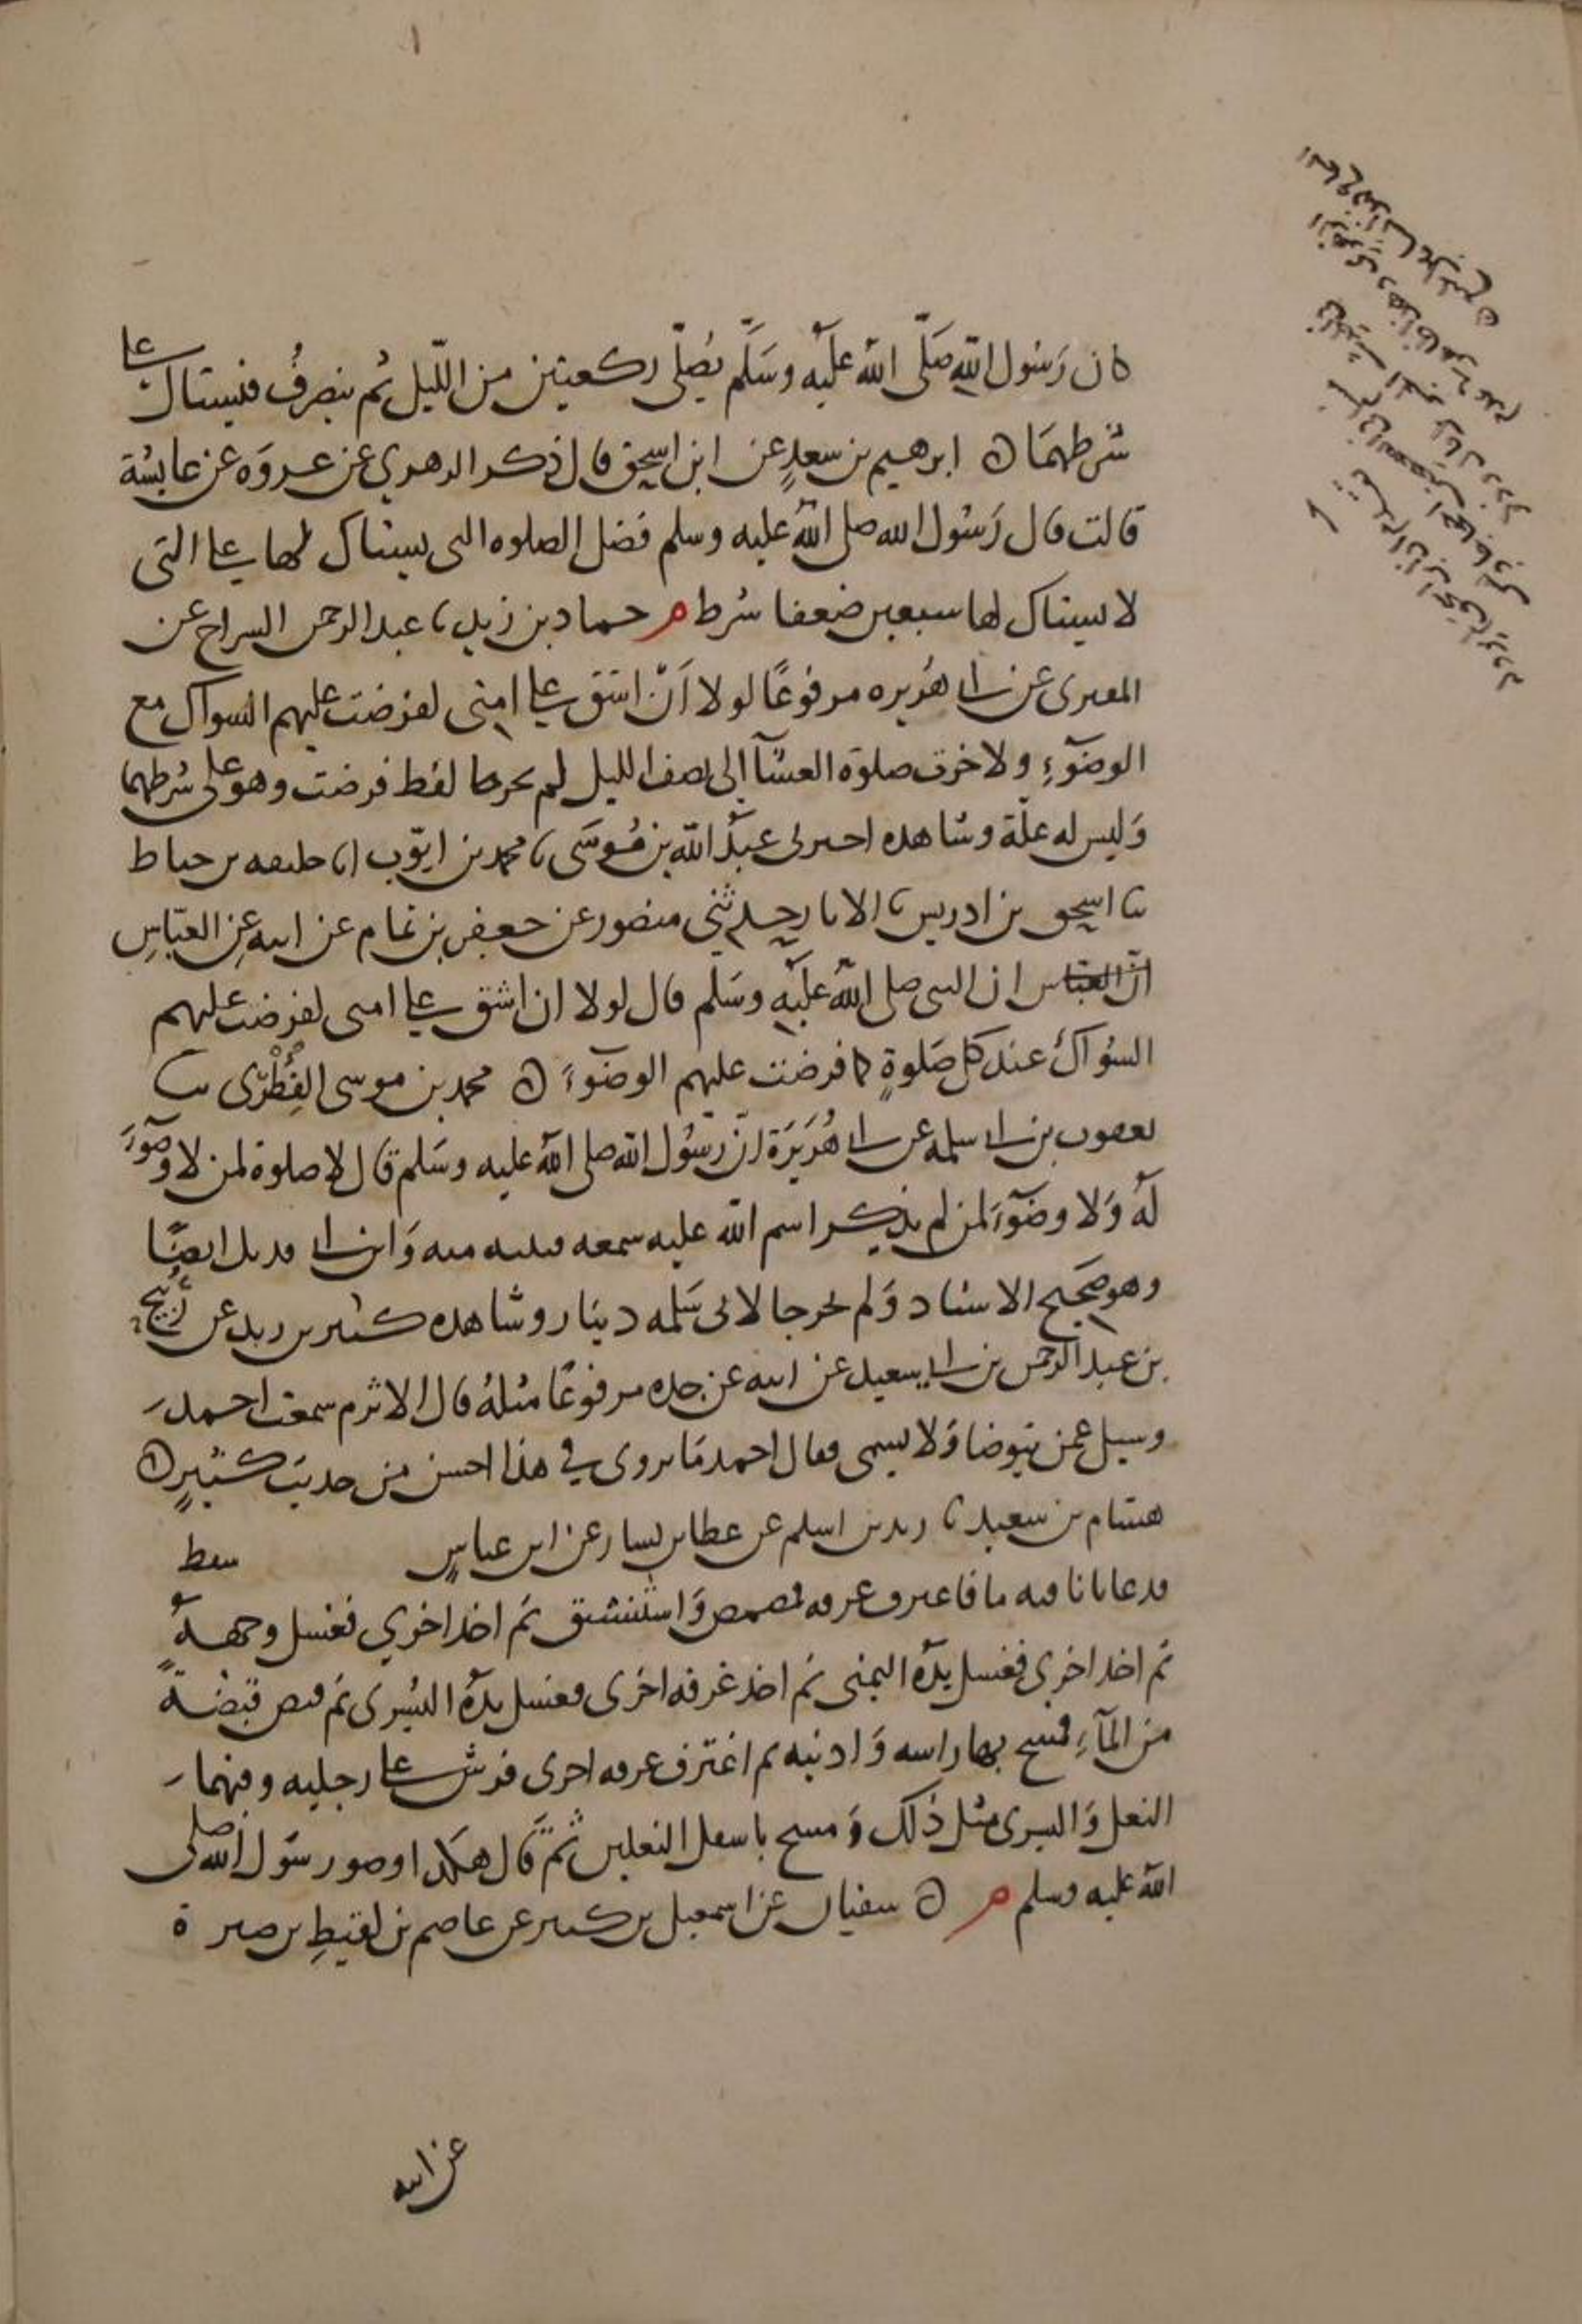 كان رَسُول اللهِ صَلَّى اللهُ عليْه وسَلَّم يُصلّي ركعتين من اللّيل ثُم ينصرفُ فيستاك على
شرطهمَا ه ابرهيم بن سعدٍ عن ابن اسحق قال ذكر الزهري عن عروَه عن عايشة
قالت قال رَسُول الله صلى اللهُ عليه وسلم فضل الصلوه التى يستاك لها على التى
لا يستاك لها سبعين ضعفا شرط م حماد بن زيد ثا عبد الرحمن السراج عن
المقبرى عن ابى هُريره مرفوعًا لولا اَنْ اشق على امتى لفرضت عليهم السواك مع
الوضوءِ ولاخرت صلوة العشآ الى نصف الليل لم يخرجا لفظ فرضت وهو على شرطهما
وَليس له علّة وشاهده اخبرنى عبدُ الله بن مُوسَى ثا محمد بن ايّوب انا خليفه بن خياط
ثنا اسحق بن ادريس ثا الابار حدثنى منصور عن جعفر بن تمام عن ابيه عنِ العبّاسِ
انّ العباس ان النبى صلى اللهُ عليْه وسَلم قال لولا ان اشق على امتى لفرضت عليهم
السوَاكَ عند كل صَلوةٍ كما فرضت عليهم الوضوءَ ه محمد بن موسى الفِطْرِى ثنا
يعقوب بن ابى سلمه عن ابى هُرَيرَة انّ رسُول الله صلى اللهُ عليه وسَلم قال لا صلوة لمن لا وضوءَ
لهُ وَلا وضوءَ لمن لم يذكر اسم الله عليه سمعه قتيبه منه وَابن ابى فديك ايضًا
وهو صحيح الاسناد وَلم يخرجا لابى سَلمه دينار وشاهده كثير بن زيد عن رُبيح
بن عبد الرحمن بن ابى سعيد عن ابيه عن جده مرفوعًا مثلهُ قال الاثرم سمعت احمد
وسيل عمن يتوضا وَلا يسمى فقال احمد مَا يروى في هذا احسن من حديث كثيرٍ ه
هشام بن سعيد ثا زيد بن اسلم عن عطا بن يسار عن ابن عباسٍ سقط
فدعا بانا فيه ما فاغترف غرفه فمضمض وَاستنشق ثم اخذ اخري فغسل وجههُ
ثم اخذ اخرى فغسل يدهُ اليمنى ثم اخذ غرفه اخرى فغسل يدهُ اليُسرى ثم قبض قبضةً
من المآءِ فمسح بها راسه وَاذنيه ثم اغترف غرفه اخرى فرش على رجليه وفيهما
النعل وَاليسرى مثل ذلك وَمسح باسفل النعلين ثمّ قال هكذا وضو رسُول الله صلى
اللهُ عليه وسلم م ه سفيان عن اسمعيل بن كثير عن عاصم بن لقيطِ بن صبرة
عن ابيه